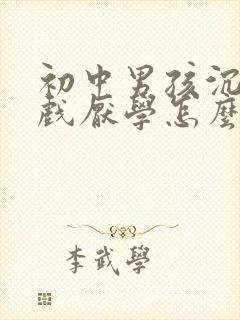 初中男孩沉
戲厭學怎麼
李武學